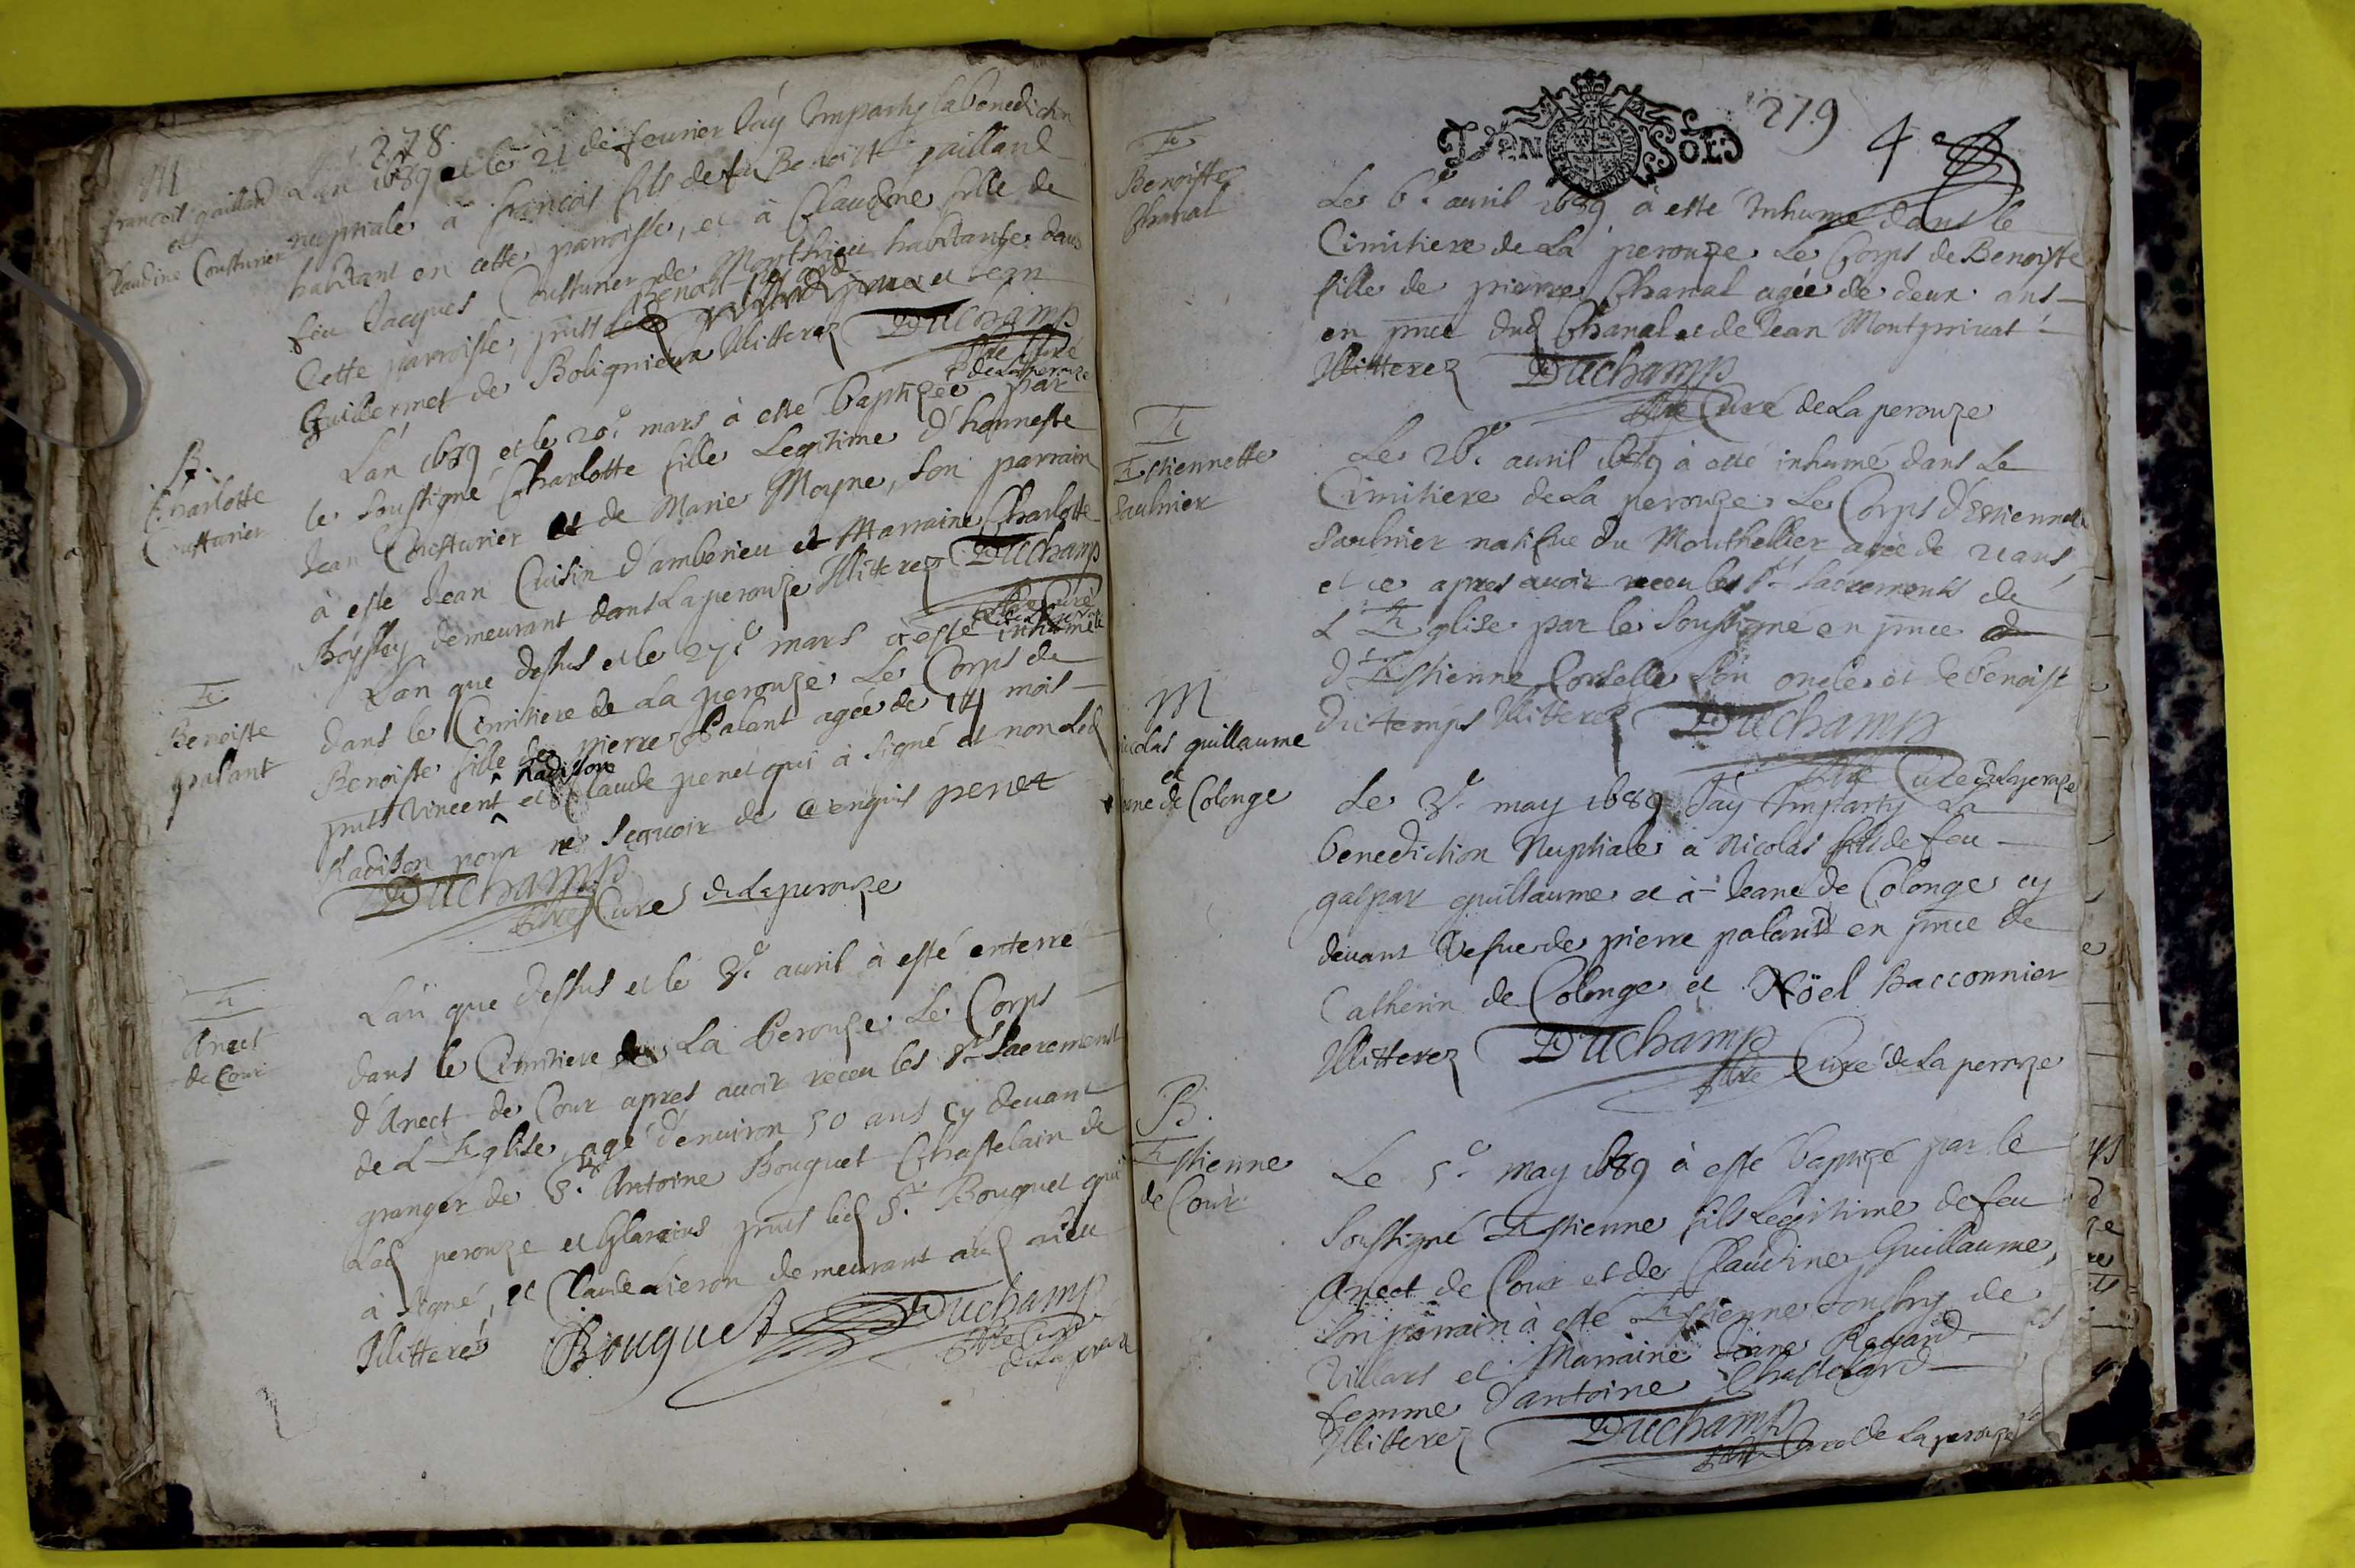 278.
M
françois gaillard
et
Claudine Cousturier
L'an 1689 et le 21e de feurier J'ay Imparty la benediction
nuptiale à françois fils de feu Benoist gaillard
habitant en cette parroisse, et à Claudine fille de
feu Jacques Cousturier de Monthieu habitante dans
Cette parroisse, pnts Benoist et Jean
Guillermet de Bolignieux Illitterez Duchamp
ptre Curé
de Laperouze
B.
Charlotte
Cousturier
L'an 1689 et le 20e mars à esté baptizée par
le soussigné Charlotte fille Legitime d'honneste
Jean Cousturier et de Marie Moyne, son parrain
à esté Jean Cuisin d'amberieu et Marraine Charlotte
demeurant dans Laperouze Illitterez Duchamp
ptre Curé
E
Benoiste
palant
L'an que dessus et le 27e mars à esté inhumée
dans le Cimitiere de La perouze Le Corps de
Benoiste fille de pierre Palant agée de 14 mois
pnts Vincent Radisson et Claude penet qui à signé et non led
Radison pour ne sçauoir de ce enquis penet
Duchamp
ptre Curé de Laperouze
E
Anect
de Cour
L'an que dessus et le 3e auril à esté enterré
dans le Cimitiere de La Perouze Le Corps
d'Anect de Cour apres auoir receu les Sts Sacrements
de L'Eglise, agé d'enuiron 50 ans Cy deuant
granger de Sr Antoine Bouquet Chastelain de
Lad perouze et Glareins pnts led Sr Bouquet qui
à signé, et Claude demeurant aud lieu
Illitteré Bouquet Duchamp
ptre Curé
de Laperouze
DEN SOLS
279
4
E
Benoiste
Chanal
Le 6e auril 1689 à esté Inhumé dans le
Cimitiere de La perouze Le Corps de Benoiste
fille de pierre Chanal agée de deux ans
en pnce dud Chanal et de Jean Montpriuat
Illitterez Duchamp
ptre Curé de La perouze
E
Estiennette
Saulnier
Le 26e auril 1689 à esté inhumé dans Le
Cimitiere de La perouze Le Corps d'Estiennette
Saulnier natifue du Monthellier agée de 21 ans,
et ce apres auoir receu les Sts Sacrements de
L'Eglise par le soussigné en pnce
d'Estienne Cordelle son oncle et de benoist
Dutemps Illitterez Duchamp
ptre Curé de Laperouze
M
nicolas guillaume
et
Jeanne de Colonge
Le 3e may 1689 J'ay Imparty La
benediction Nuptiale à Nicolas fils de feu
gaspar guillaume et à Jeane de Colonge cy
deuant Vefue de pierre paland en pnce de
Catherin de Colonge et Nöel Bacconnier
Illitterez Duchamp
ptre Curé de La perouze
B.
Estienne
de Cour
Le 5e May 1689 à esté baptizé par le
soussigné Estienne fils Legitime de feu
Anect de Cour et de Claudine Guillaume,
son parrain à esté Estienne de
Villars et Marraine Jeane Renard
femme d'antoine Chastelard
Illitterez Duchamp
ptre Curé de Laperouze